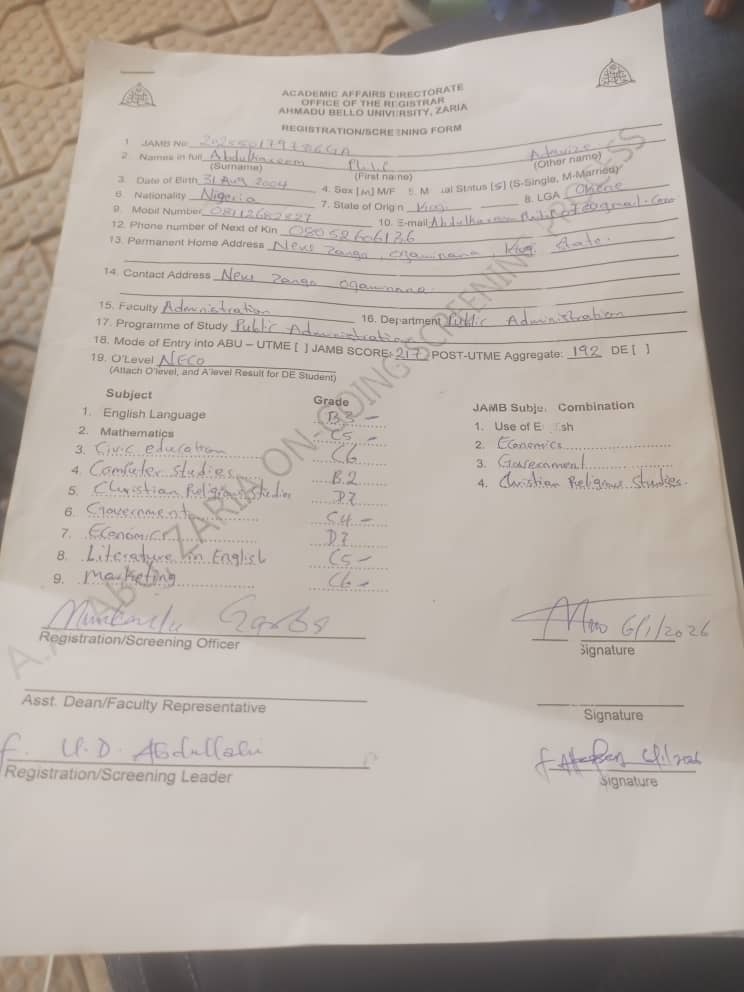 ACADEMIC AFFAIRS DIRECTORATE
OFFICE OF THE REGISTRAR
AHMADU BELLO UNIVERSITY, ZARIA
REGISTRATION/SCREENING FORM
1. JAMB No
2. Names in full Abdulkareem Philip
(Surname) (First name) (Other name)
3. Date of Birth 31 Aug 2004 4. Sex [M] M/F 5. M ual Status [S] (S-Single, M-Married)
6. Nationality Nigeria 7. State of Origin Kogi 8. LGA Okene
9. Mobil Number 08112682827 10. E-mail
12. Phone number of Next of Kin
13. Permanent Home Address New Zango, Ogaminana, Kogi State.
14. Contact Address New Zango Ogaminana.
15. Faculty Administration 16. Department Public Administration
17. Programme of Study Public Administration
18. Mode of Entry into ABU – UTME [ ] JAMB SCORE: 217 POST-UTME Aggregate: 192 DE [ ]
19. O'Level NECO
(Attach O'level, and A'level Result for DE Student)
Subject Grade JAMB Subje Combination
1. English Language B3 1. Use of E sh
2. Mathematics C5 2. Economics
3. Civic education C6 3. Government
4. Computer Studies B.2 4. Christian Religious Studies.
5. Christian Religious Studies D7
6. Government C4
7. Economics D7
8. Literature in English C5
9. Marketing C6
6/1/2026
Registration/Screening Officer Signature
Asst. Dean/Faculty Representative Signature
U.D. Abdullahi 6/1/2026
Registration/Screening Leader Signature
ABU, ZARIA ON GOING SCREENING PROCESS